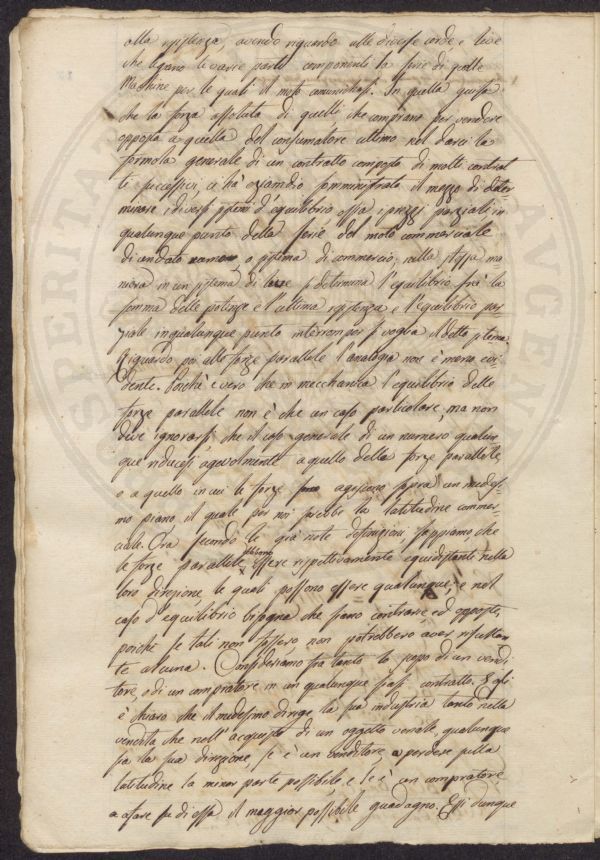 alla resistenza, avendo riguardo alle diverse corde e leve
che legano le varie parti componenti la serie di quelle
Macchine per le quali il moto comunicasi. In quella guisa
che la forza assoluta di quelli, che comprano per vendere
opposta a quella del consumatore ultimo nel darci la
formola generale di un contratto composto di molti contrat
ti successivi, ci ha eziandio somministrato il mezzo di deter
minare i diversi sistemi d'equilibrio ossia i prezzi parziali in
qualunque punto della serie del moto commerciale
di andata o sistema di commercio; nella stessa ma
niera in un sistema di leve si determina l'equilibrio frà la
somma delle potenze e l'ultima resistenza e l'equilibrio par
ziale in qualunque punto interromper si voglia il detto sistema.
Riguardo poi alle forze parallele l'analogia non è meno evi
dente. Poichè è vero che in meccanica l'equilibrio delle
forze parallele non è che un caso particolare, ma non
deve ignorarsi che il caso generale di un numero qualun
que riducesi agevolmente a quello della forze parallele,
o a quello in cui le forze agiscono sopra un medesi
mo piano, il quale per noi sarebbe la latitudine commer
ciale. Ora secondo le già note definizioni sappiamo che
le forze parallele debbono essere rispettivamente equidistanti nella
loro direzione le quali possono essere qualunque; e nel
caso d'equilibrio bisogna che siano contrarie ed opposte,
poichè se tali non fossero non potrebbero aver risultan
te alcuna. Consideriamo fra tanto lo scopo di un vendi
tore, o di un compratore in un qualunque siasi contratto. Egli
è chiaro che il medesimo dirige la sua industria tanto nella
vendita che nell'acquisto di un oggetto venale, qualunque
sia la sua direzione, se è un venditore a perdere sulla
latitudine la minor parte possibile, e se è un compratore
a fare su di essa il maggior possibile guadagno. Essi dunque